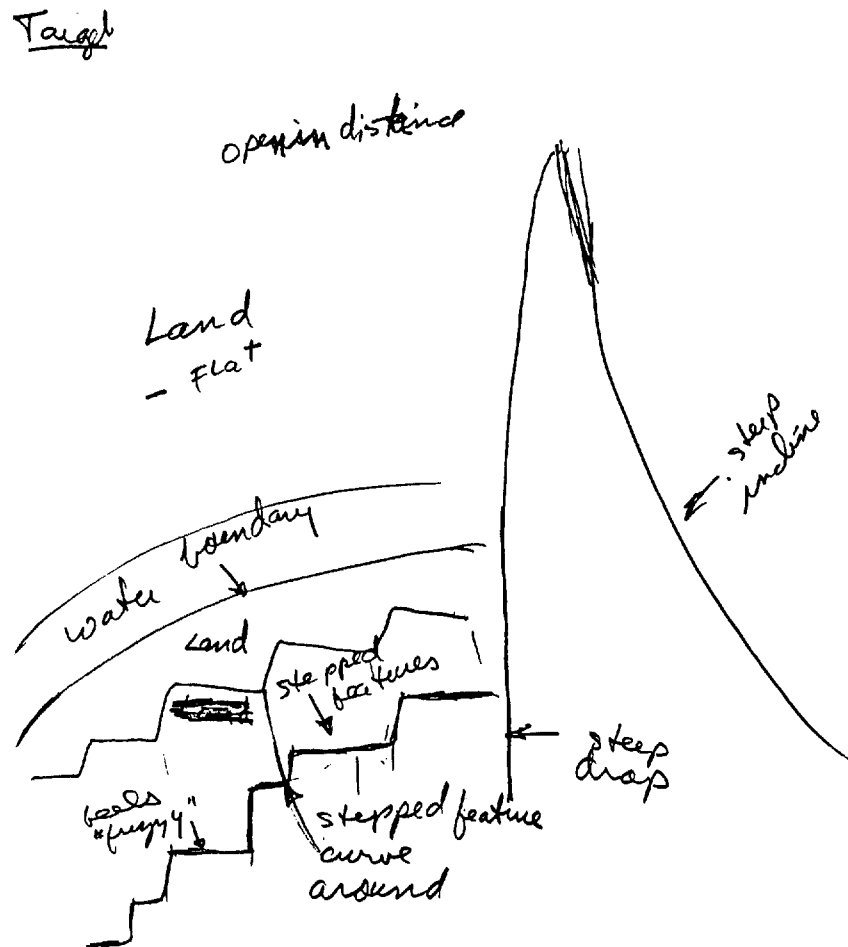 Target
open in distance
Land
- FLat
steep
incline
water boundary
Land
stepped
features
feels
"fuzzy"
stepped feature
curve
around
steep
drop